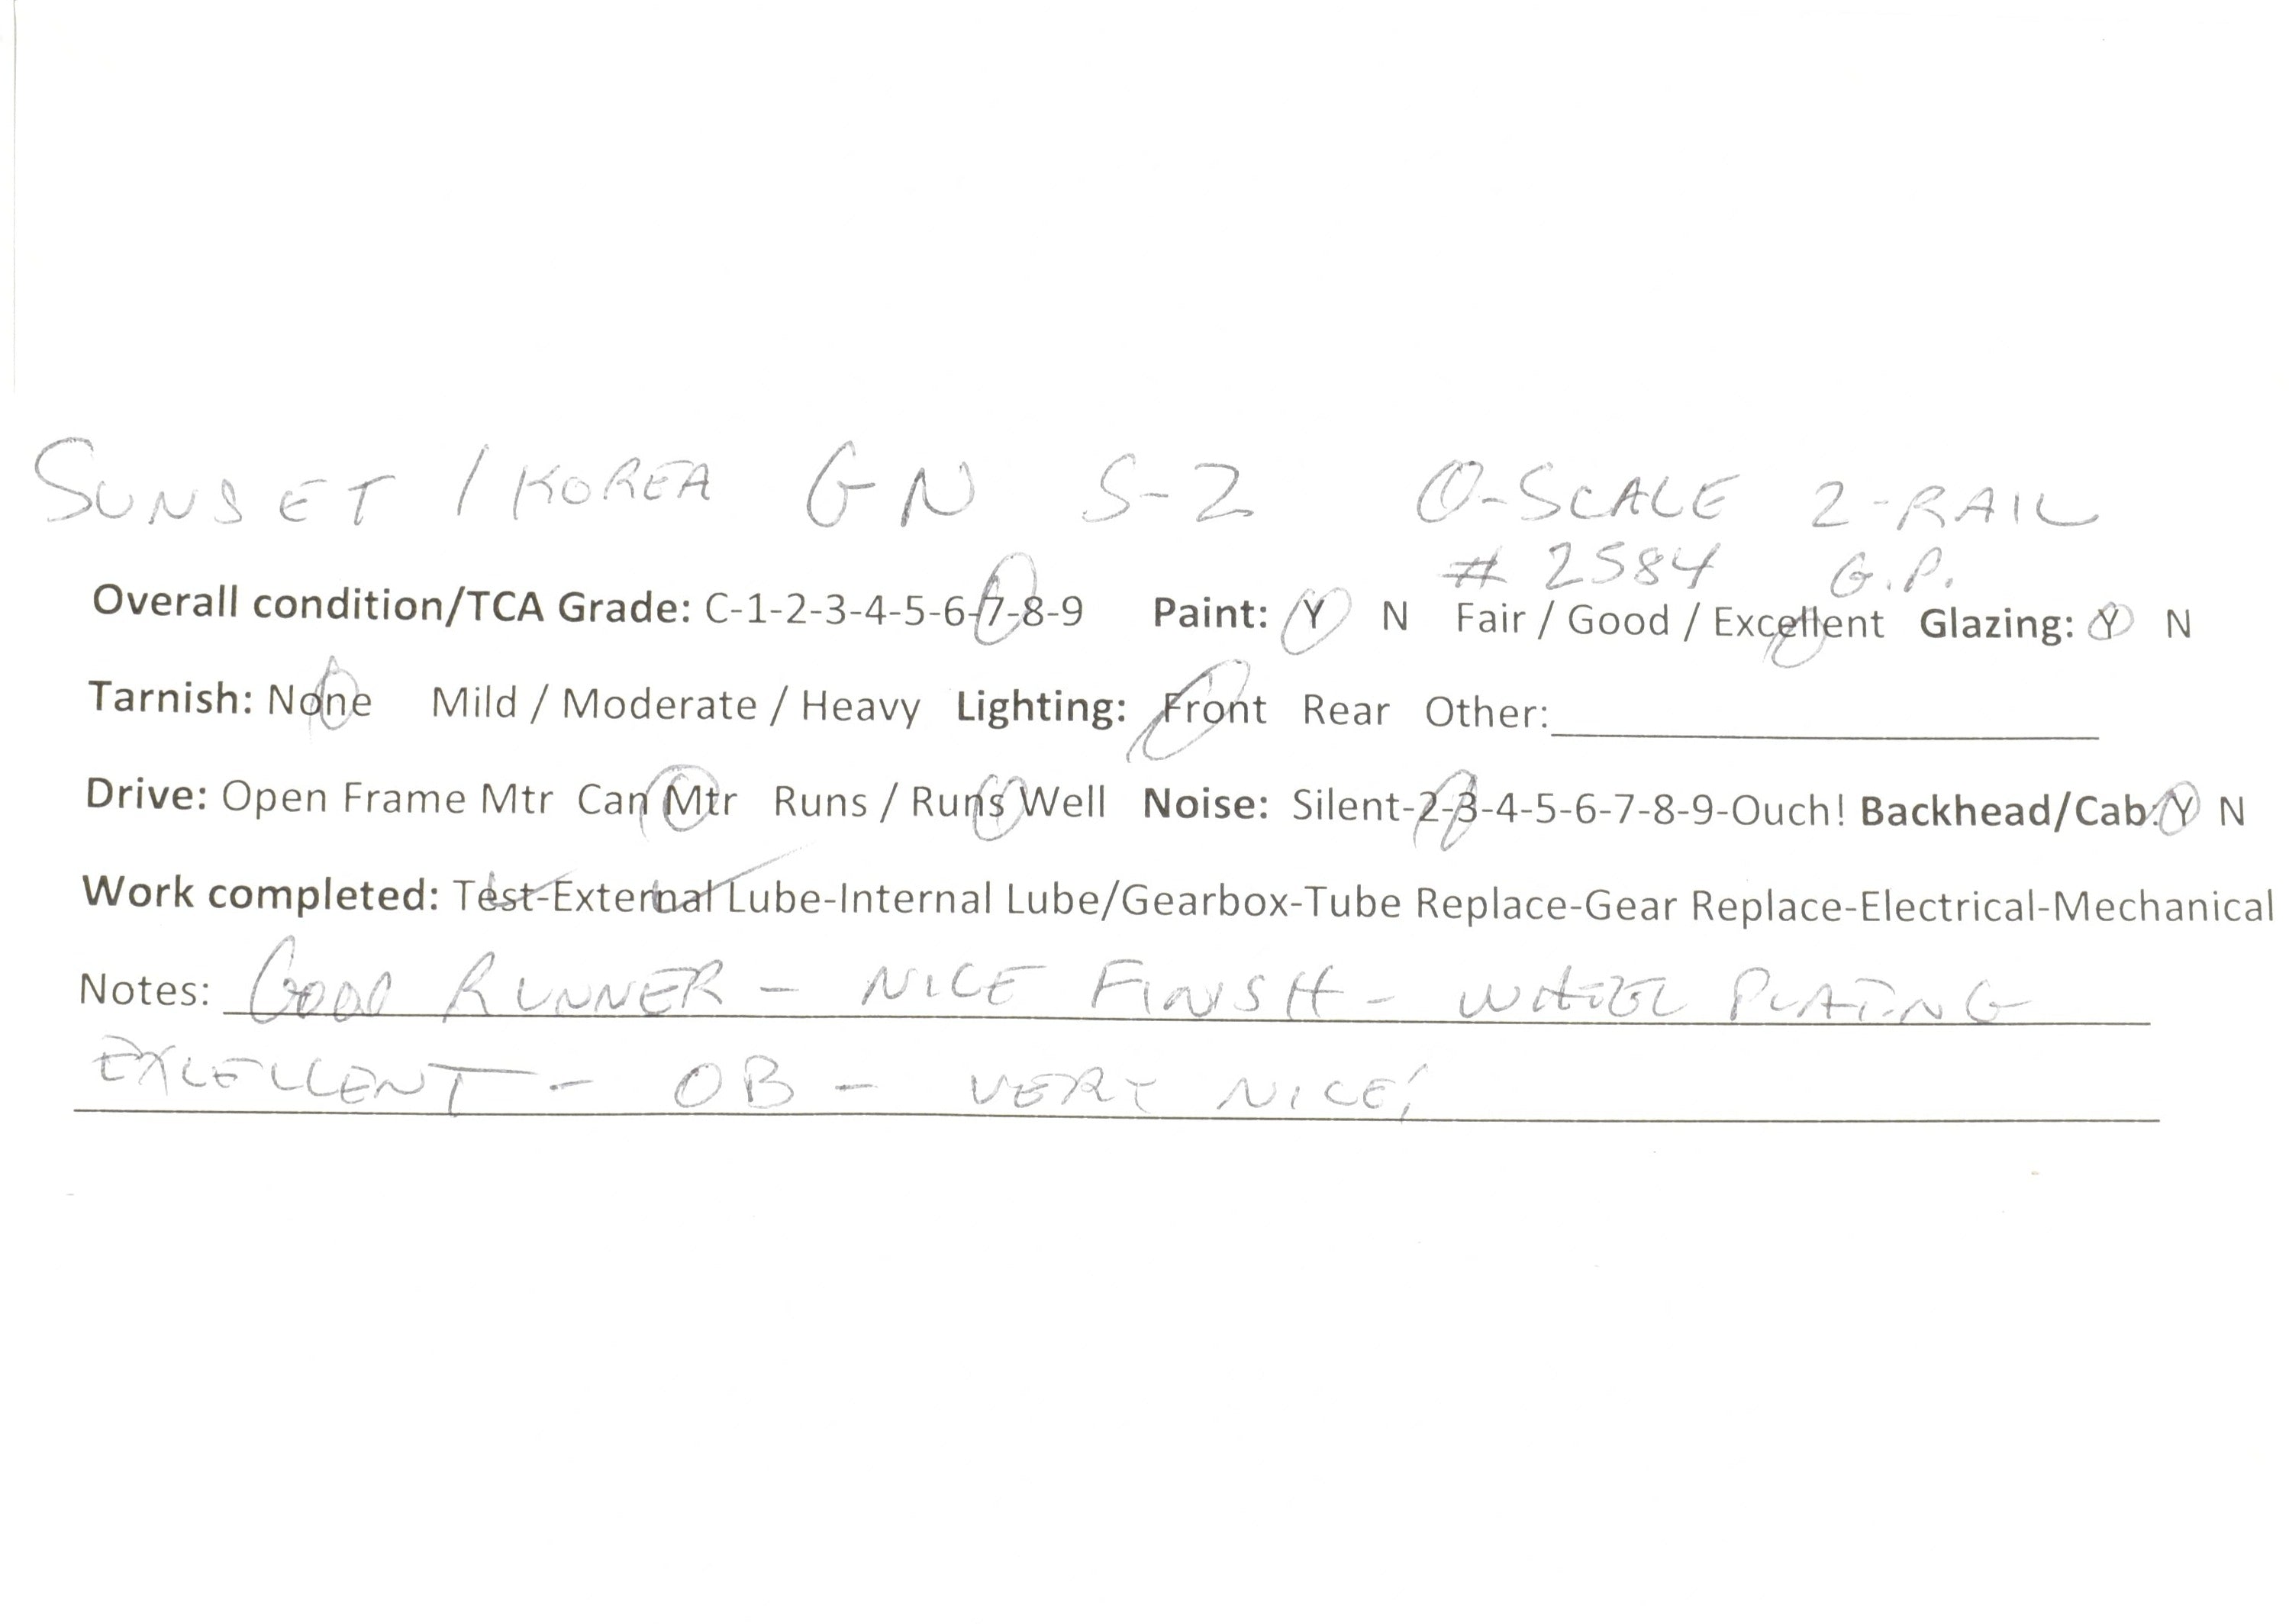 SUNSET / KOREA GN S-2 O-SCALE 2-RAIL
# 2584 G.P.
Overall condition/TCA Grade: C-1-2-3-4-5-6-7-8-9 Paint: Y N Fair / Good / Excellent Glazing: Y N
Tarnish: None Mild / Moderate / Heavy Lighting: Front Rear Other:
Drive: Open Frame Mtr Can Mtr Runs / Runs Well Noise: Silent-2-3-4-5-6-7-8-9-Ouch! Backhead/Cab: Y N
Work completed: Test-External Lube-Internal Lube/Gearbox-Tube Replace-Gear Replace-Electrical-Mechanical
Notes: GOOD RUNNER - NICE FINISH - WHEEL PLATING
EXCELLENT - OB - VERY NICE!